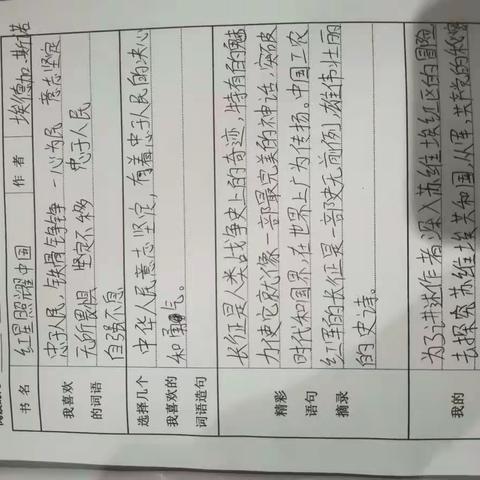 书 名 红星照耀中国 作 者 埃德加·斯诺
我喜欢
的词语
忠于人民 铁骨铮铮 一心为民 意志坚定
无所畏惧 坚定不移 忠于人民
自强不息
选择几个
我喜欢的
词语造句
中华人民意志坚定,有着忠于人民的决心
和勇气。
精彩
语句
摘录
长征是人类战争史上的奇迹,特有的魅
力使它就像一部最完美的神话,突破
时代和国界,在世界上广为传扬。中国工农
红军的长征是一部史无前例,雄伟壮丽
的史诗。
我的
为了讲述作者深入苏维埃红区的冒险
去探究苏维埃共和国,从军,共党的秘密